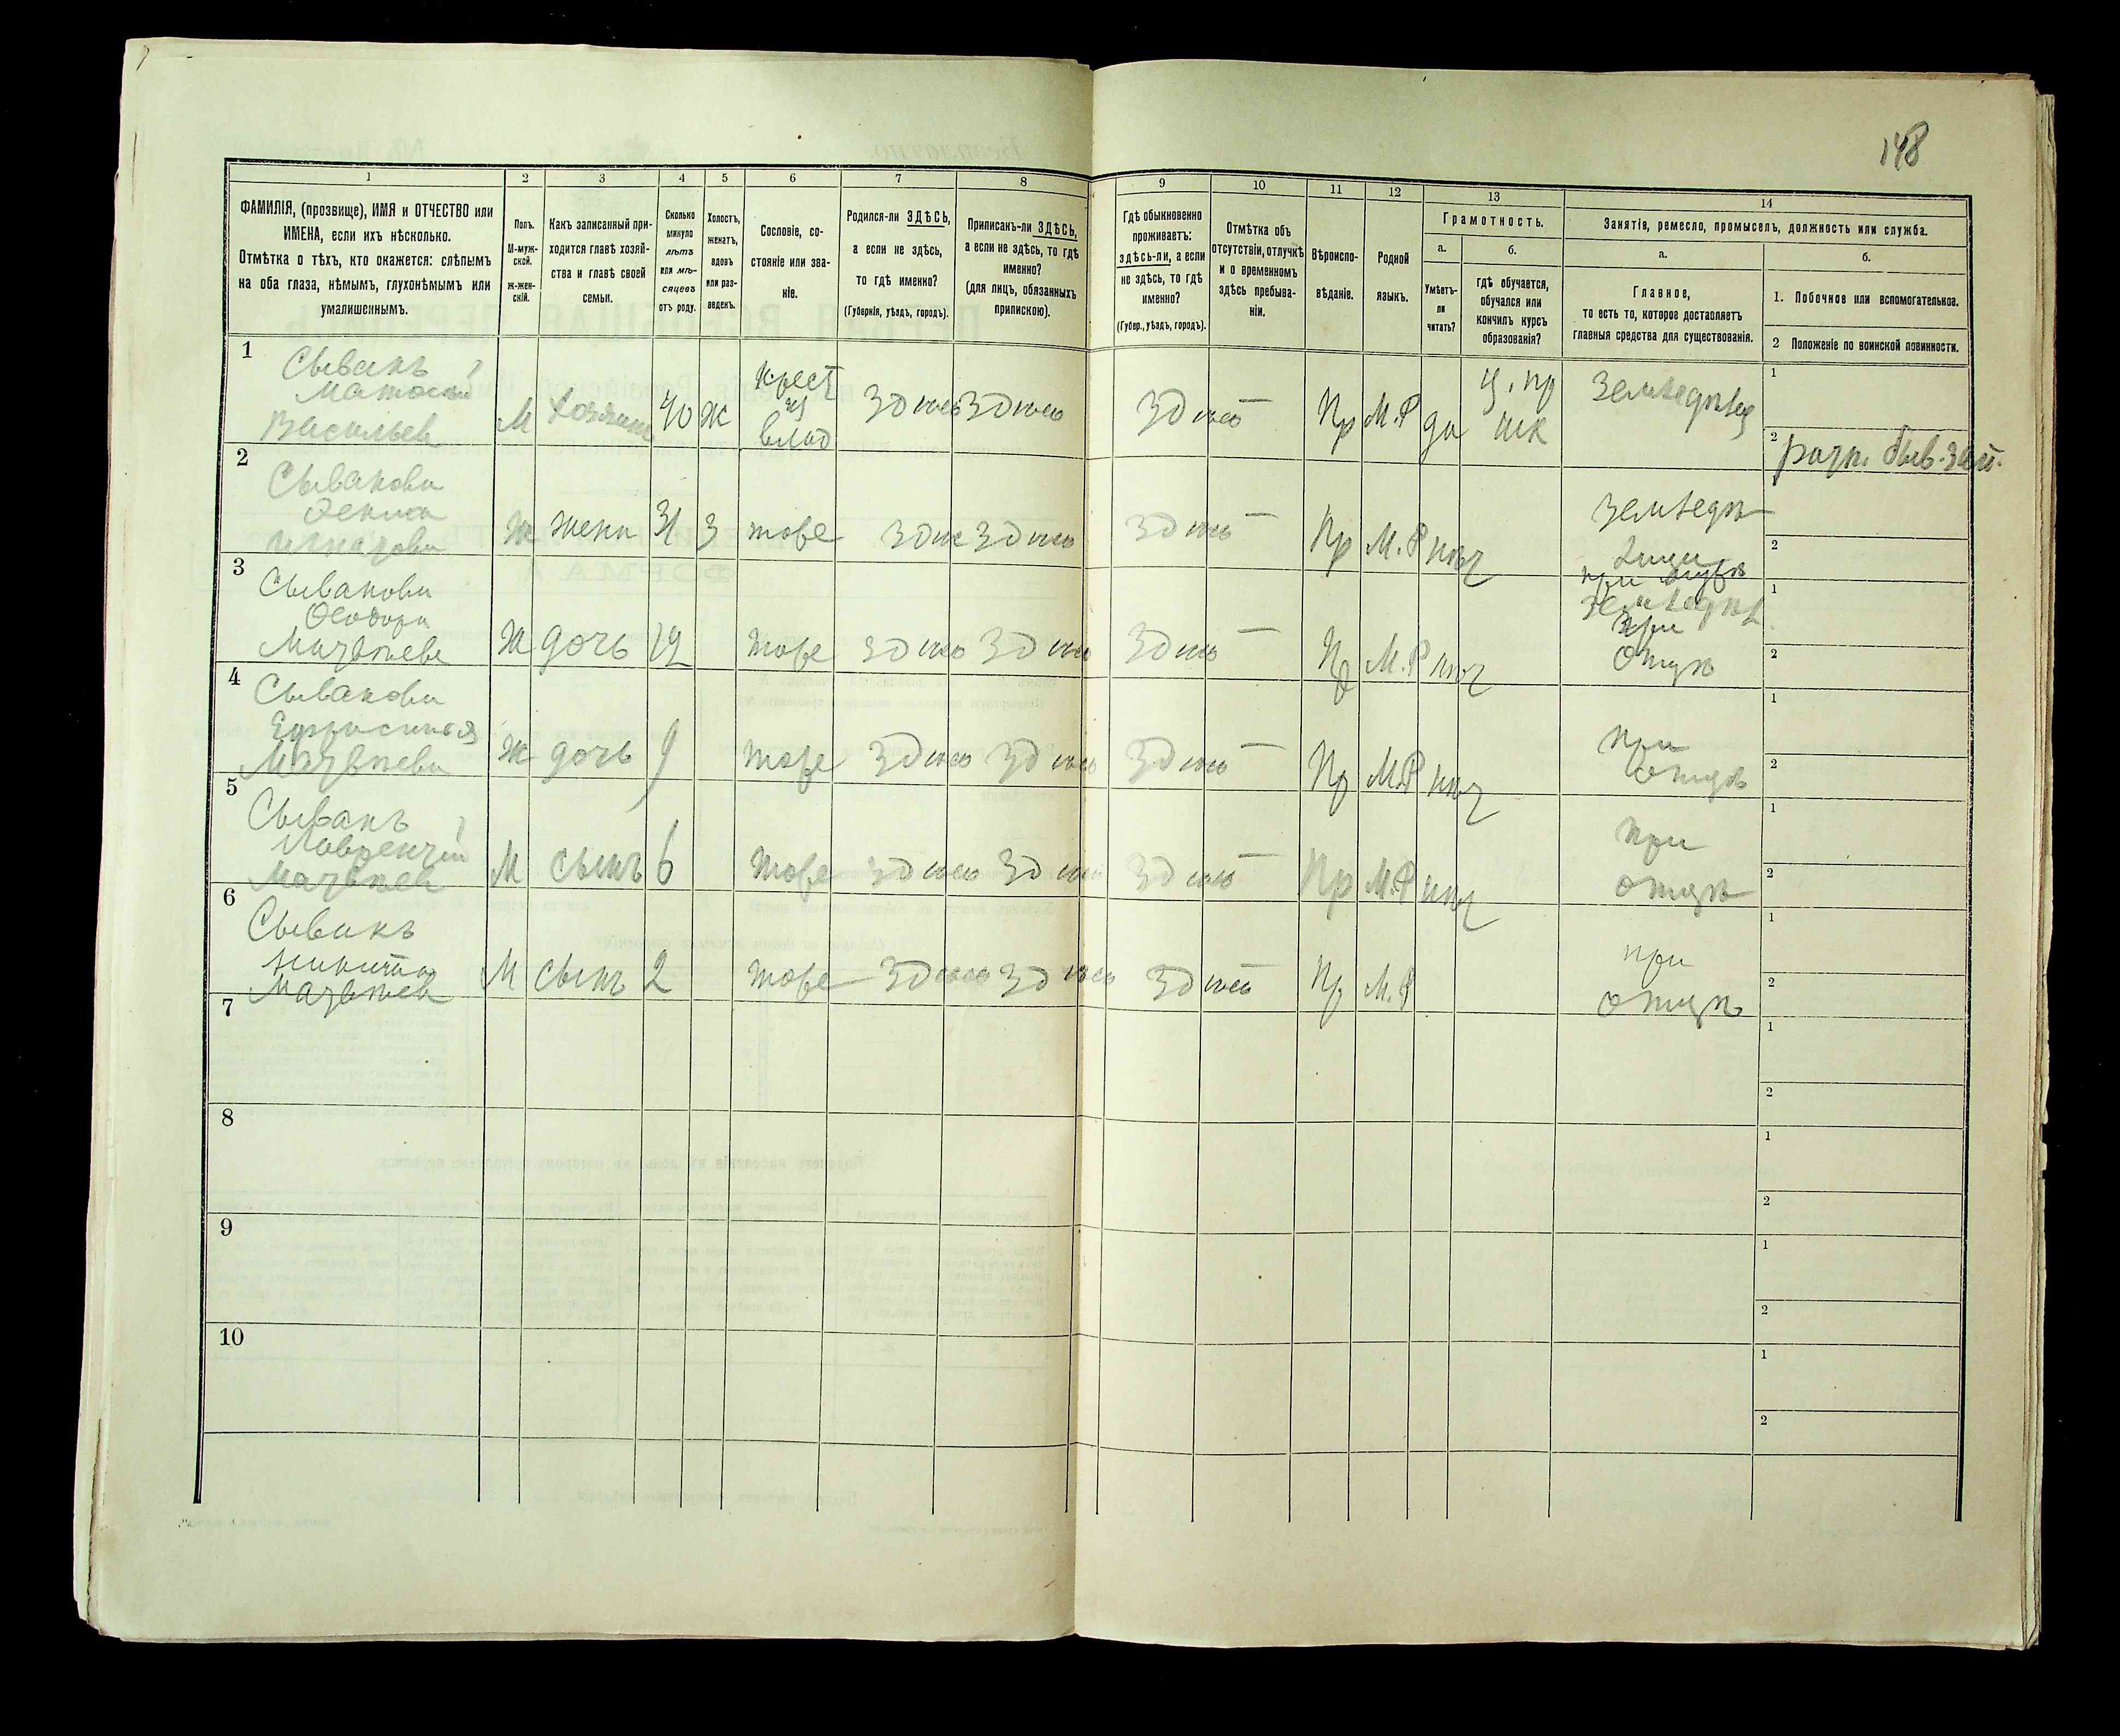 148
1 2 3 4 5 6 7 8 9 10 11 12 13 14
ФАМИЛІЯ, (прозвище), ИМЯ и ОТЧЕСТВО или
ИМЕНА, если ихъ нѣсколько.
Отмѣтка о тѣхъ, кто окажется: слѣпымъ
на оба глаза, нѣмымъ, глухонѣмымъ или
умалишеннымъ.
Полъ.
М-муж-
ской.
Ж-жен-
скій.
Какъ записанный при-
ходится главѣ хозяй-
ства и главѣ своей
семьи.
Сколько
минуло
лѣтъ
или мѣ-
сяцевъ
отъ роду.
Холостъ,
женатъ,
вдовъ
или раз-
веденъ.
Сословіе, со-
стояніе или зва-
ніе.
Родился-ли ЗДѢСЬ,
а если не здѣсь,
то гдѣ именно?
(Губернія, уѣздъ, городъ).
Приписанъ-ли ЗДѢСЬ,
а если не здѣсь, то гдѣ
именно?
(для лицъ, обязанныхъ
припискою).
Гдѣ обыкновенно
проживаетъ:
здѣсь-ли, а если
не здѣсь, то гдѣ
именно?
(Губер., уѣздъ, городъ).
Отмѣтка объ
отсутствіи, отлучкѣ
и о временномъ
здѣсь пребыва-
ніи.
Вѣроиспо-
вѣданіе.
Родной
языкъ.
Грамотность.
а.
Умѣетъ-
ли
читать?
б.
Гдѣ обучается,
обучался или
кончилъ курсъ
образованія?
Занятія, ремесло, промыселъ, должность или служба.
а.
Главное,
то есть то, которое доставляетъ
главныя средства для существованія.
б.
1. Побочное или вспомогательное.
2 Положеніе по воинской повинности.
1
Сывакъ
Матвѣй
Васильев
М Хозяинъ 40 Ж
Крест
из
влад
Здѣсь Здѣсь Здѣсь — Пр М.Р да
ц. пр
шк
Земледѣлец
1
2
ратн.
2
Сывакова
Ж жена 31 З тоже Здѣс Здѣсь Здѣсь — Пр М.Р нѣт
Земледѣл
при мужѣ
1
2
3
Сывакова
Феодора
Матвѣева
Ж дочь 12 тоже Здѣсь Здѣсь Здѣсь — Пр М.Р нѣт
при
отцѣ
1
2
4
Сывакова
Ефросинья
Матвѣева
Ж дочь 9 тоже Здѣсь Здѣсь Здѣсь — Пр М.Р нѣт
при
отцѣ
1
2
5
Сывакъ
Лаврентій
Матвѣев
М сынъ 6 тоже Здѣсь Здѣсь Здѣсь — Пр М.Р нѣт
при
отцѣ
1
2
6
Сывакъ
Никита
Матвѣев
М сынъ 2 тоже Здѣсь Здѣсь Здѣсь Пр М.Р
при
отцѣ
1
2
7
1
2
8
1
2
9
1
2
10
1
2